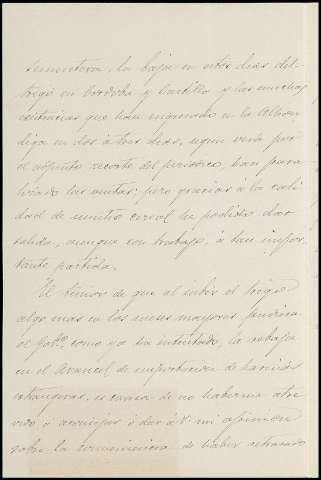 sementera, la baja en estos dias del
trigo en Cordoba y Castilla y las muchas
existencias que han ingresado en la Alhon
diga en dos á tres dias, segun verá por
el adjunto recorte del periodico, han para
lizado las ventas; pero gracias á la cali
dad de nuestro cereal he podido dar
salida, aunque con trabajo, á tan impor
tante partida.
El temor de que al subir el trigo
algo mas en los meses mayores pudiera
el Gobº, como ya ha intentado, la rebaja
en el Arancel de importacion de harinas
extrangeras, es causa de no haberme atre
vido á aconsejar ó dar á V. mi opinion
sobre la conveniencia de haber retrasado